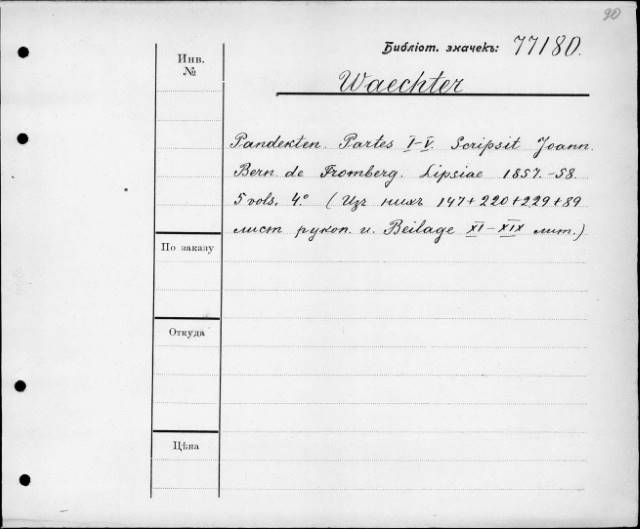 90
Библіот. значекъ: 77180.
Инв.
№
Waechter
Pandekten. Partes I–V. Scripsit Joann.
Bern. de Fromberg. Lipsiae 1857.–58.
5 vols. 4.° (Изъ нихъ 147+220+229+89
лист рукоп. и. Beilage XI–XIX лит.)
По заказу
Откуда
Цѣна